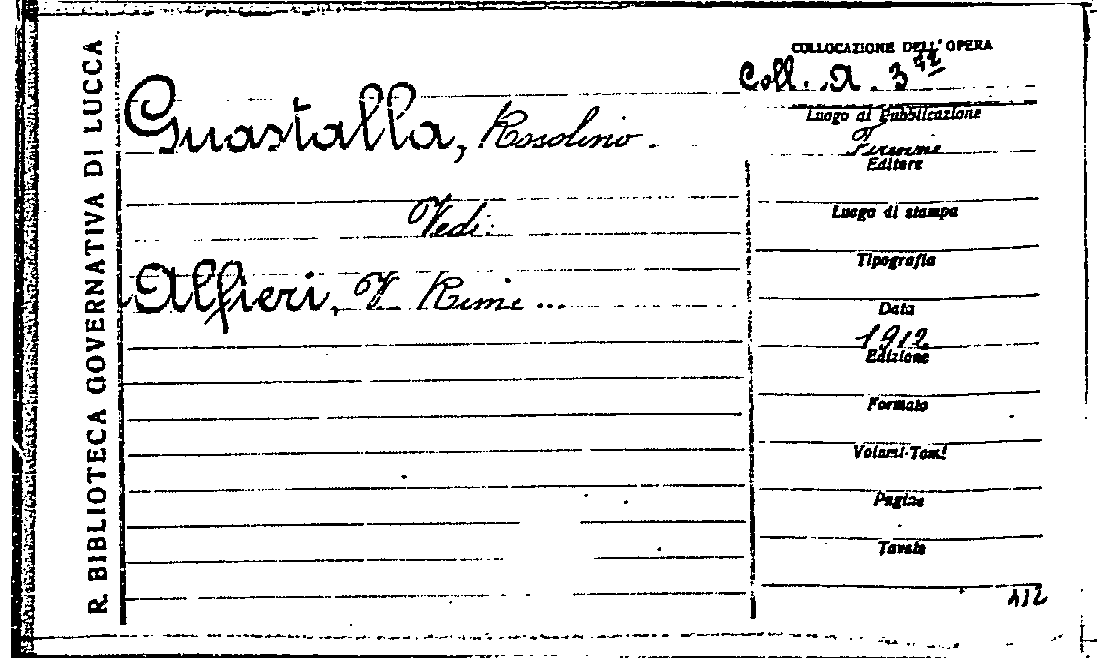 R. BIBLIOTECA GOVERNATIVA DI LUCCA
Guastalla, Rosolino.
Vedi:
Alfieri, V Rime ...
COLLOCAZIONE DELL'OPERA
Coll. A. 3
Luogo di Pubblicazione
Firenze
Editore
Luogo di stampa
Tipografia
Data
1912
Edizione
Formato
Volumi-Tomi
Pagine
Tavole